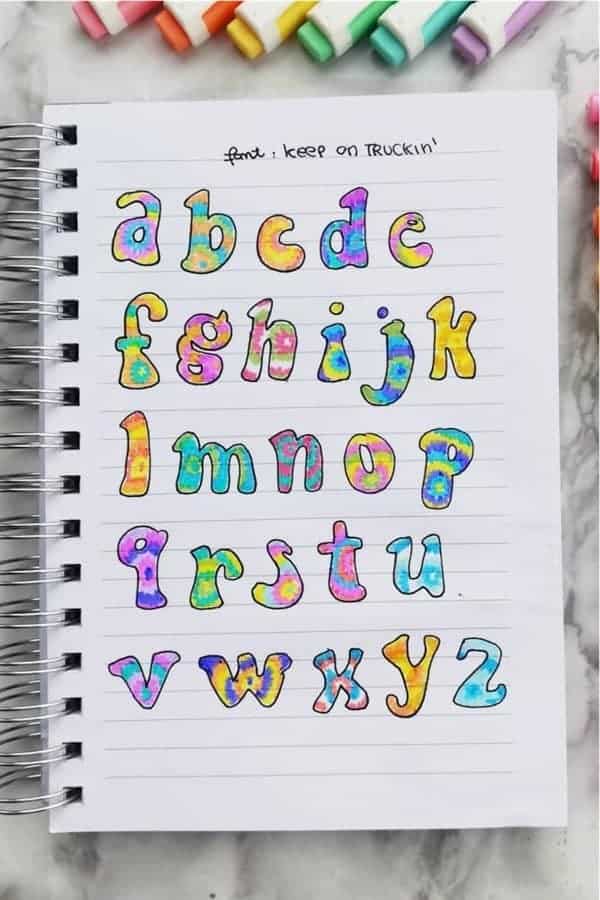 font: keep on TRUCKIN'
a b c d e
f g h i j k
l m n o p
q r s t u
v w x y z